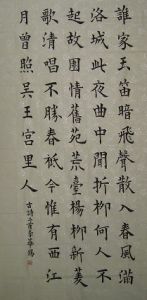 誰家玉笛暗飛聲散入春風滿
洛城此夜曲中聞折柳何人不
起故園情舊苑荒臺楊柳新菱
歌清唱不勝春秪今惟有西江
月曾照吳王宮里人
古詩二首李華